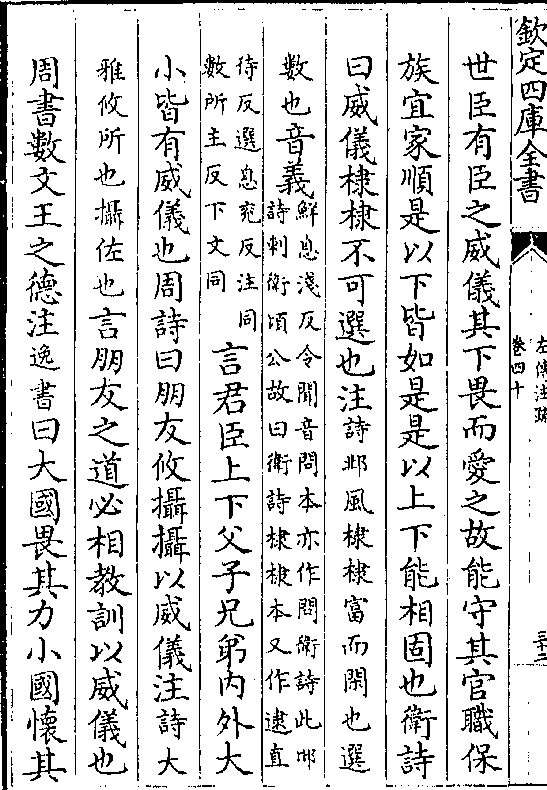 欽定四庫全書
左傳注疏
卷四十
三十二
世臣有臣之威儀其下畏而愛之故能守其官職保
族宜家順是以下皆如是是以上下能相固也衛詩
曰威儀棣棣不可選也注詩邶風棣棣富而閑也選
數也音義
鮮息淺反令聞音問本亦作問衛詩此邶
詩刺衛頃公故曰衛詩棣棣本又作逮直
待反選息兖反注同
數所主反下文同
言君臣上下父子兄弟内外大
小皆有威儀也周詩曰朋友攸攝攝以威儀注詩大
雅攸所也攝佐也言朋友之道必相教訓以威儀也
周書數文王之德注逸書曰大國畏其力小國懷其